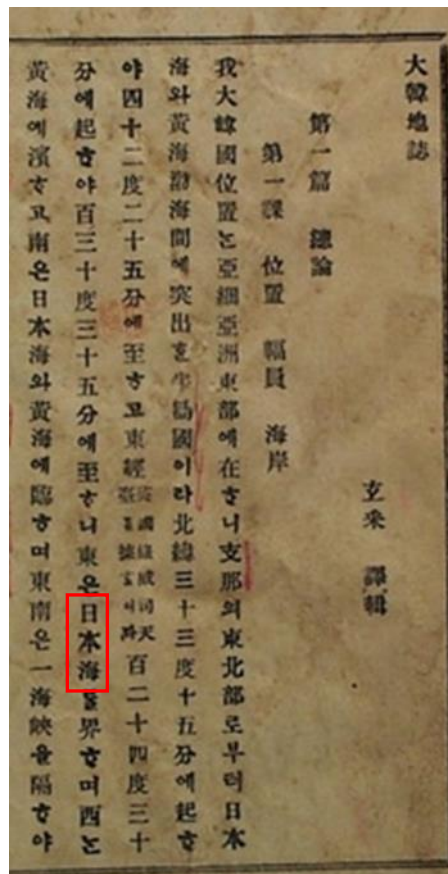 大韓地誌
玄采 譯輯
第一篇 總論
第一課 位置 幅員 海岸
我大韓國位置는亞細亞洲東部에在ᄒᆞ니支那의東北部로부터日本
海와黃海渤海間에突出ᄒᆞᆫ半島國이라北緯三十三度十五分에起ᄒᆞ
야四十二度二十五分에至ᄒᆞ고東經英國綠威司天臺를據ᄒᆞᆷ이라百二十四度三十
分에起ᄒᆞ야百三十度三十五分에至ᄒᆞ니東은日本海를界ᄒᆞ며西는
黃海에濱ᄒᆞ고南은日本海와黃海에臨ᄒᆞ며東南은一海峽을隔ᄒᆞ야